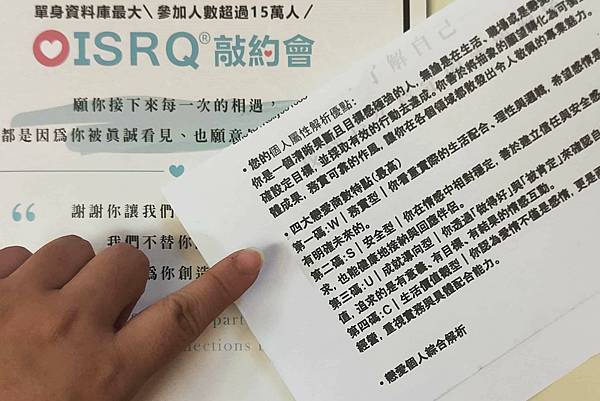 單身資料庫最大\ 參加人數超過15萬人/
ISRQ®敲約會
願你接下來每一次的相遇,
都是因為你被真誠看見、也願意
謝謝你讓我們
我們不替你
為你創造
part
nections
•您的個人屬性解析優點:
你是一個清晰果斷且目標感極強的人,無論是在生活、職場或是
確設定目標,並採取有效的行動去達成。你善於將抽象的願望轉化為可
體成果,務實可靠的作風,讓你在各個領域都散發出令人敬佩的專業魅力。
•四大戀愛商數特點(最高)
第一碼:W|務實型|你看重實際的生活配合、理性與邏輯,希望感情是
有明確未來的。
第二碼:S|安全型|你在情感中相對穩定,善於建立信任與安全感
求,也能健康地接納與回應伴侶。
第三碼:U|成就導向型|你透過「做得好」與「被肯定」來確認自
值,追求的是有意義、有目標、有結果的情感互動。
第四碼:C|生活價值觀型|你認為愛情不僅是感情,更是
經營,重視實務與具體配合能力。
•戀愛個人綜合解析